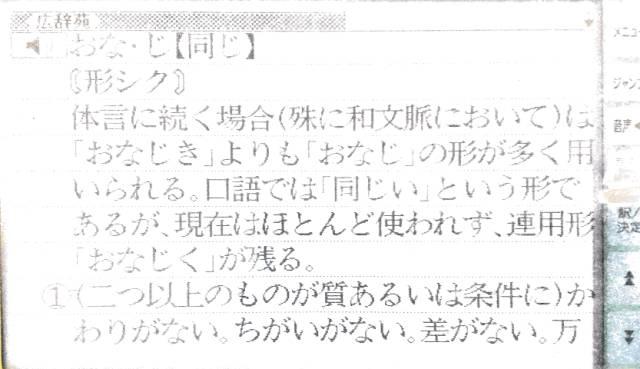 広辞苑
おな・じ【同じ】
〘形シク〙
体言に続く場合(殊に和文脈において)は
「おなじき」よりも「おなじ」の形が多く用
いられる。口語では「同じい」という形で
あるが、現在はほとんど使われず、連用形
「おなじく」が残る。
①(二つ以上のものが質あるいは条件に)か
わりがない。ちがいがない。差がない。万
メニュー
ジャン
音声
訳/
決定